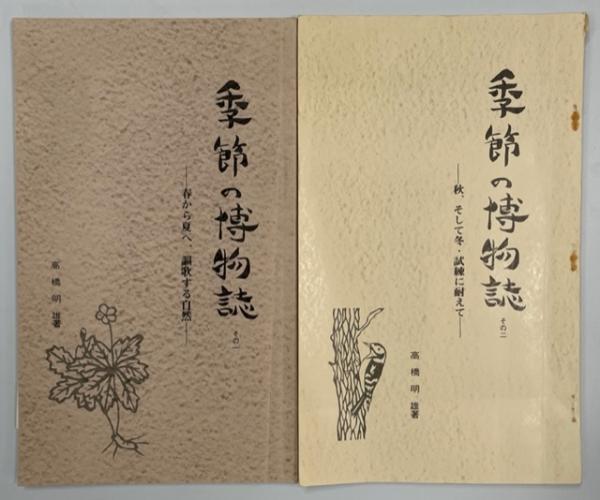 季節の博物誌
その一
――春から夏へ、謳歌する自然――
高橋明雄著
季節の博物誌
その二
――秋、そして冬・試練に耐えて――
高橋明雄著